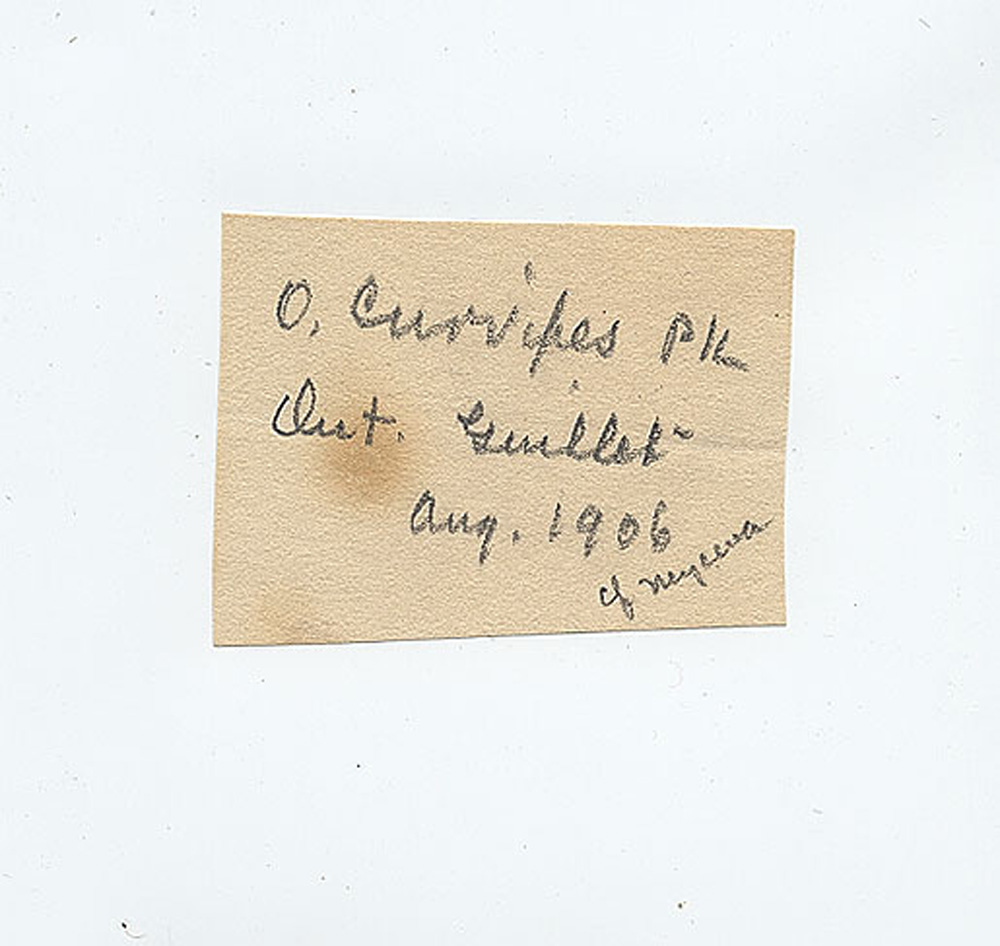 O. Curvipes Pk
Ont. Guillet
Aug. 1906
cf Mycena